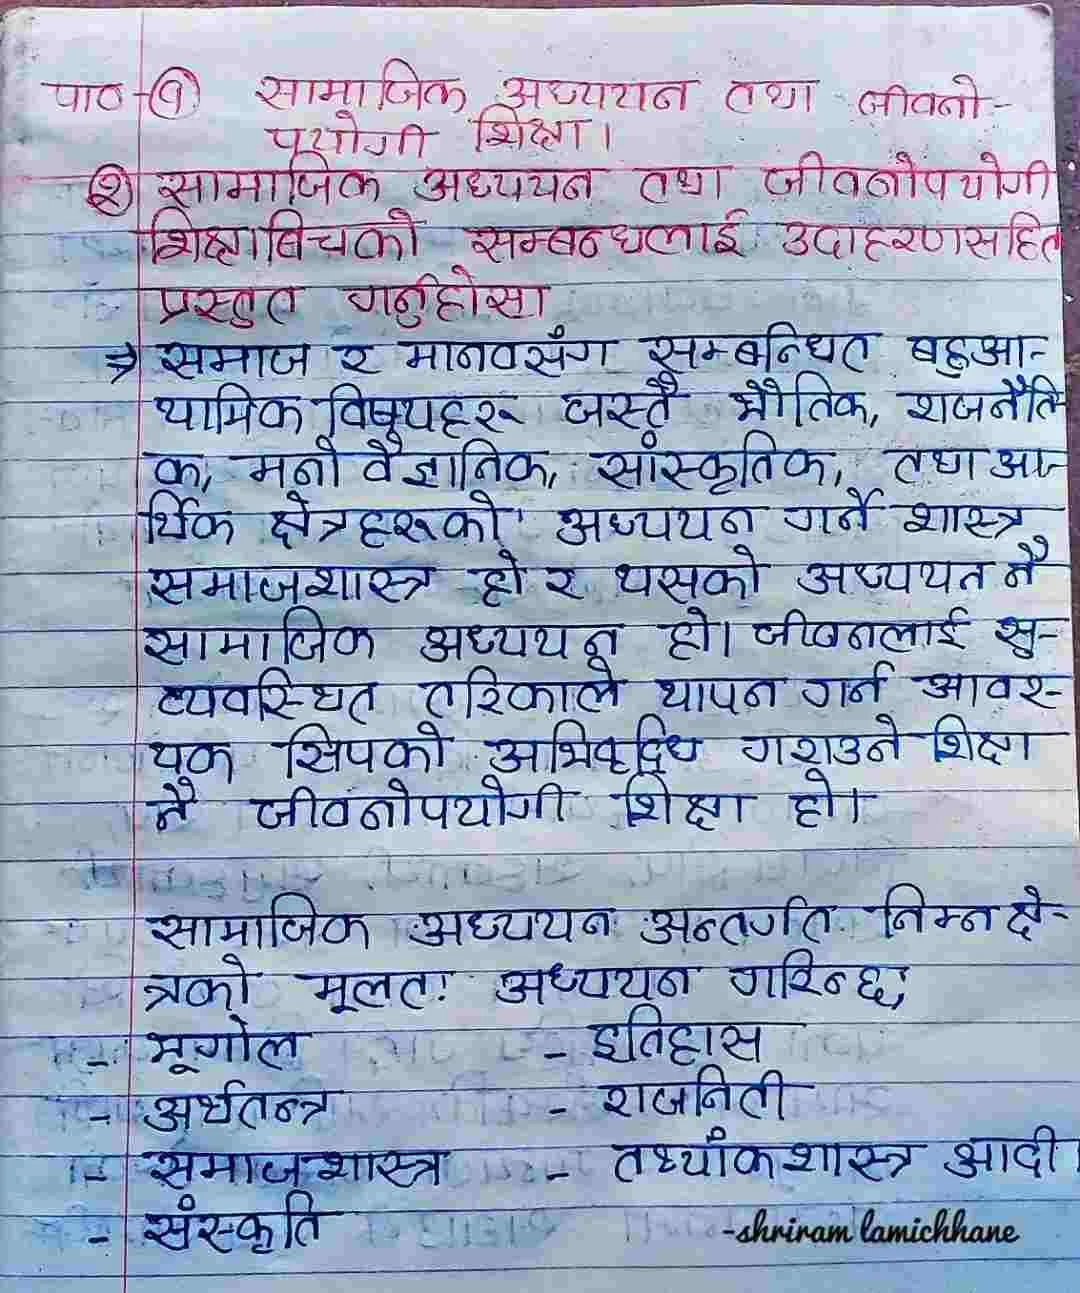 पाठ-१ सामाजिक अध्ययन तथा जीवनो-
पयोगी शिक्षा।
२) सामाजिक अध्ययन तथा जीवनोपयोगी
शिक्षाबिचको सम्बन्धलाई उदाहरणसहित
प्रस्तुत गर्नुहोस।
⇒ समाज र मानवसंग सम्बन्धित बहुआ-
यामिक विषयहरू जस्तै भौतिक, राजनैति-
क, मनोवैज्ञानिक, सांस्कृतिक, तथा आ-
र्थिक क्षेत्रहरूको अध्ययन गर्ने शास्त्र
समाजशास्त्र हो र यसको अध्ययन नै
सामाजिक अध्ययन हो। जीवनलाई सु-
व्यवस्थित तरिकाले यापन गर्न आवश-
यक सिपको अभिवृद्धि गराउने शिक्षा
नै जीवनोपयोगी शिक्षा हो।
सामाजिक अध्ययन अन्तर्गत निम्न क्षे-
त्रको मूलत: अध्ययन गरिन्छ;
- भूगोल - इतिहास
- अर्थतन्त्र - राजनिती
- समाजशास्त्र - तथ्यांकशास्त्र आदी।
- संस्कृति
-shriram lamichhane